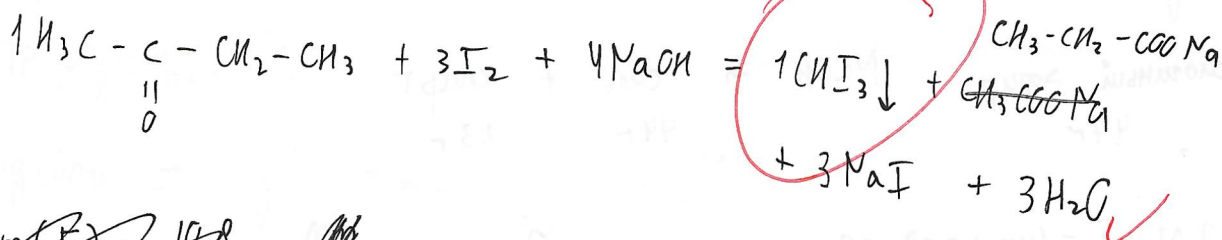 1H₃C - C - CH₂-CH₃ + 3I₂ + 4NaOH = 1CHI₃↓ + CH₃-CH₂-COONa
||
O
+ 3NaI + 3H₂O